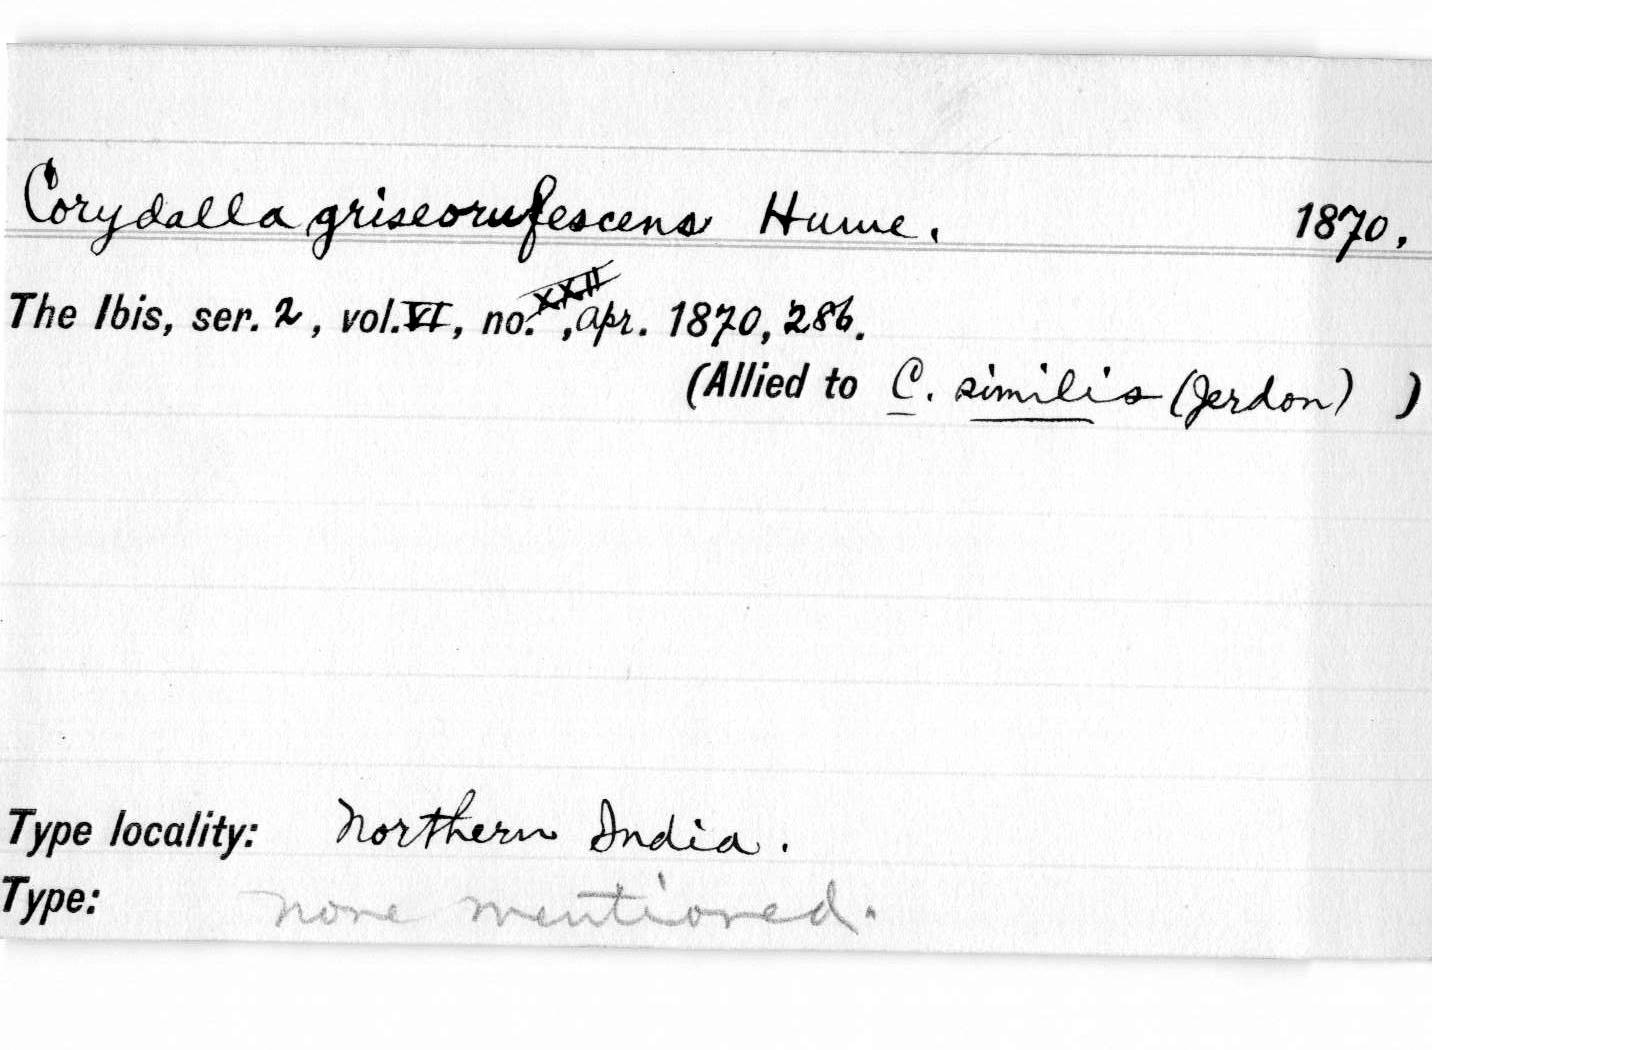 Corydalla griseorufescens Hume. 1870.
The Ibis, ser. 2, vol. VI, no. XXII, Apr. 1870, 286.
(Allied to C. similis (Jerdon) )
Type locality: Northern India.
Type: none mentioned.